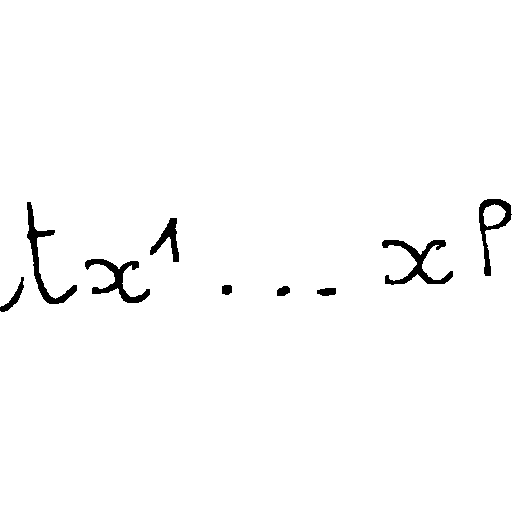 tx¹ ... xᵖ